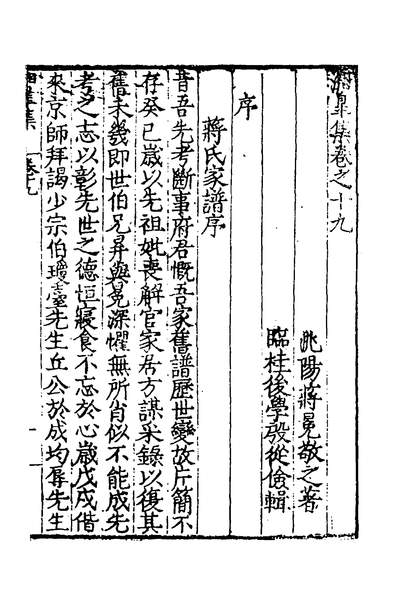 湘皋集卷之十九
洮陽蔣冕敬之著
臨桂後學殷從儉輯
序
蔣氏家譜序
昔吾先考斷事府君慨吾家舊譜歷世變故片簡不
存癸巳歲以先祖妣喪解官家居方謀采錄以復其
舊未幾即世伯兄昇與冕深懼無所肖似不能成先
考之志以彰先世之德恒寢食不忘於心歲戊戌偕
來京師拜謁少宗伯瓊臺先生丘公於成均辱先生
湘皋集
卷十九
一